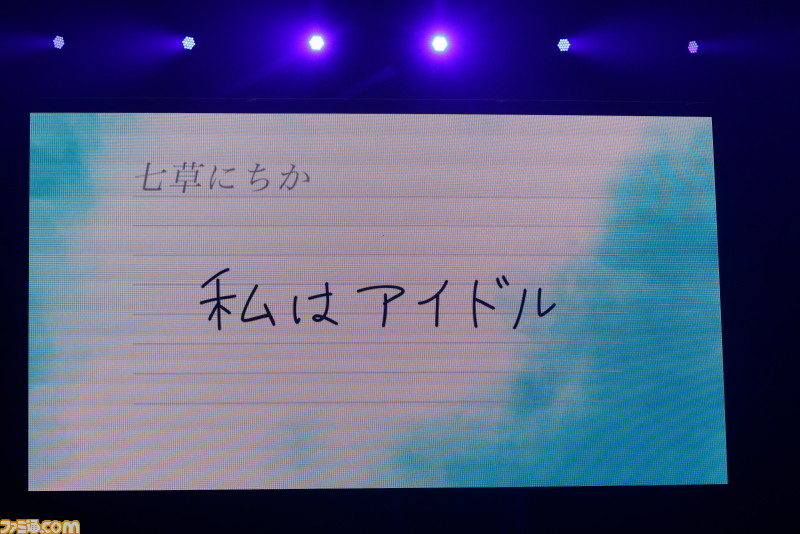 七草にちか
私はアイドル
ファミ通.com